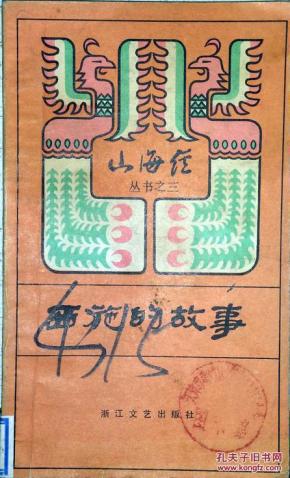 山海经
丛书之三
西施的故事
浙江文艺出版社
孔夫子旧书网